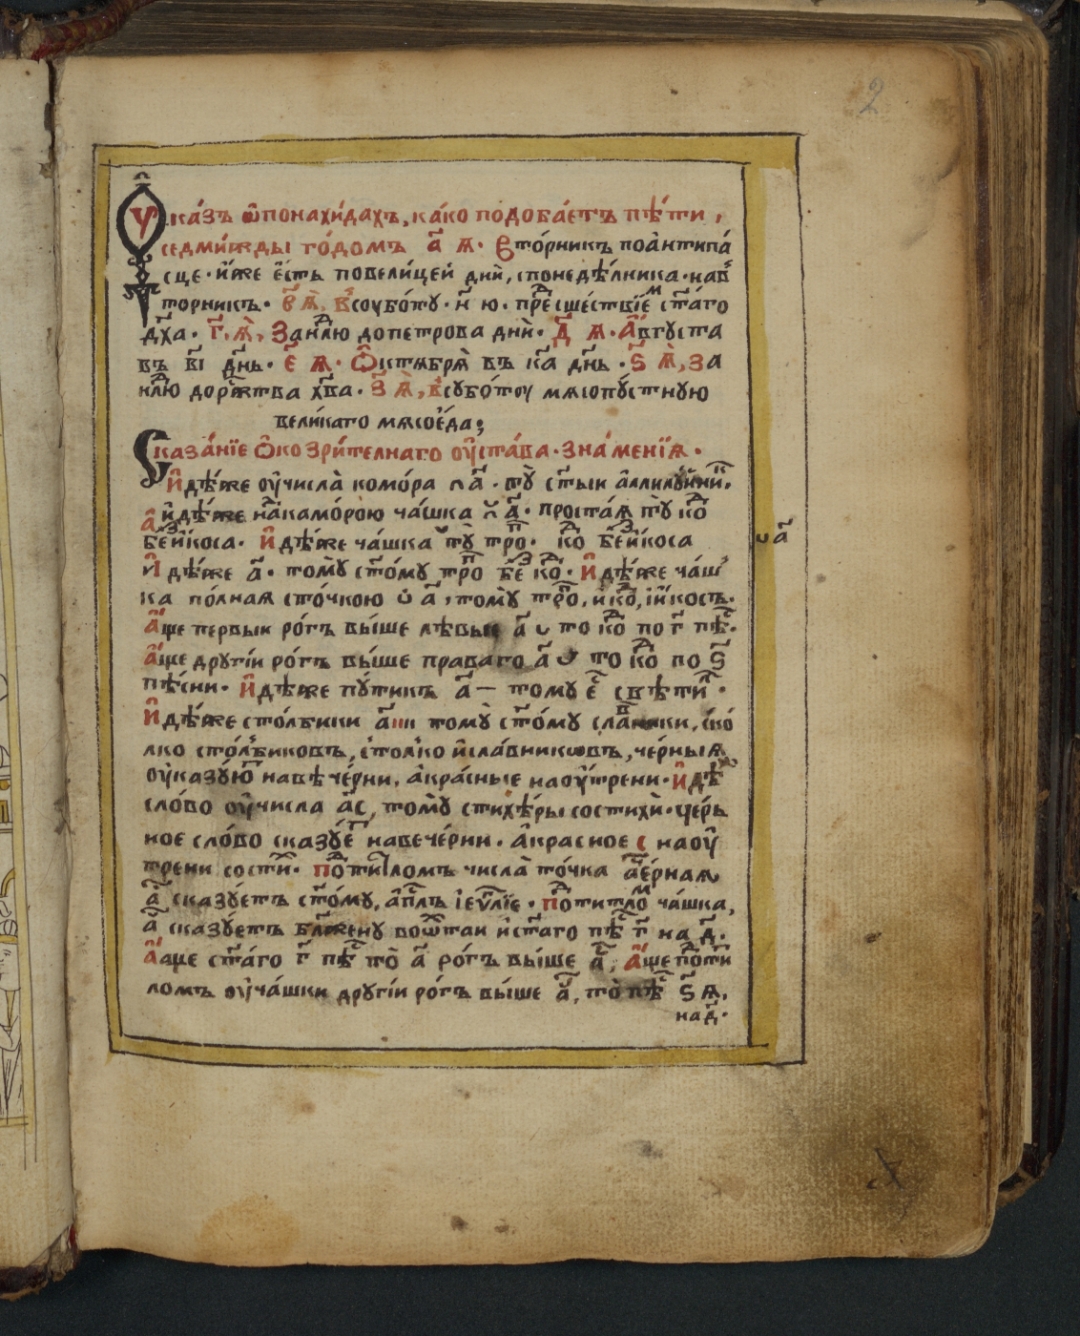 2
Ꙋка́зъ ѡ҆понахи́дахъ, ка́ко подоба́етъ пѣ́ти,
седми́жды го́домъ а҃ ꙗ. Вто́рникъ поа҆нтипа́
сце. и҆́же е҆́сть повели́цей дни̑, спонедѣ́лника. нав
то́рникъ. в҃ ꙗ, Всоубо́ту. н҃ ю. пре́сше́ствїе ст҃а́го
дх҃а. г҃, ꙗ, Занⷣлю допетрова дни̑. д҃ ꙗ. А҆́вгуста
въ в҃і дн҃ь. е҃ ꙗ. Ѻ҆ктѧбрѧ̀ въ к҃а дн҃ь. ѕ҃ ꙗ, За
нⷣлю дорⷤтва хв҃а. з҃ ꙗ, всубо́тоу мѧсопу́стную
вели́каго мѧсое́да;
Сказа́нїе ѻ҆козри́телнаго оу҆ста́ва. зна́менїѧ.
И҆дѣ́же оу҆числа̀ комо́ра ᴖа҃. тꙋ̀ ст҃ыи аллилꙋ́и
А҆ идѣ́же на́камо́рою ча́шка а҃. проста́ѧ тꙋ коⷣ
бе́и́коса. И҆дѣ́же ча́шка тꙋ̀ тропⷬ. коⷣ бе́и́коса
И҆дѣ́же а҃. томꙋ̀ ст҃о́му троⷫ беⷥ коⷣ. И҆дѣ́же ча́ш
ка по́лнаѧ сто́чкою а҃, томꙋ̀ троⷫ, и҆коⷣ, і҆и҆косъ.
А҆́ще первыи ро́гъ вы́ше лѣвы́ѧ а҃ то коⷣ по г҃ пѣⷭ.
А҆́ще другі́и ро́гъ вы́ше праваго а҃ то коⷣ по ѕ҃
пѣ́сни. И҆дѣ́же пꙋ́тикъ а҃ — тому е҃ свѣтиⷧ.
И҆дѣ́же сто́лбики а҃ııı томꙋ̀ ст҃о́му слаⷡники, ско́
лко сто́лбиковъ, сто́лко и҆сла́вниковъ, че́рныѧ
оу҆казꙋ́ютъ навѣче́рни, а҆кра́сные наоу҆́трени. И҆дѣⷤ
сло́во оу҆числа а҃с, томꙋ̀ стихѣ́ры состихи̑. че́рь
ное сло́во сказꙋ́етъ навече́рни. а҆красное с наоу҆
трени состиⷯ. подтиⷮломъ числа̀ то́чка че́рнаѧ
а҃ сказꙋ́етъ ст҃о́му, а҆пⷭлъ і҆еѵⷢлїе. поⷣтитло́ⷨ ча́шка,
а҃ сказꙋ́етъ блаже́ну воѿтаи и҆ст҃а́го пѣⷭ г҃ на д҃.
А҆́аще ст҃а́го г҃ пѣⷭ то̀ а҃ ро́гъ вы́ше а҃, А҆́ще поⷣти
ломъ оу҆ча́шки другі́и ро́гъ вы́ше а҃, то̀ пѣⷭ ѕ҃ ꙗ,
на д҃.